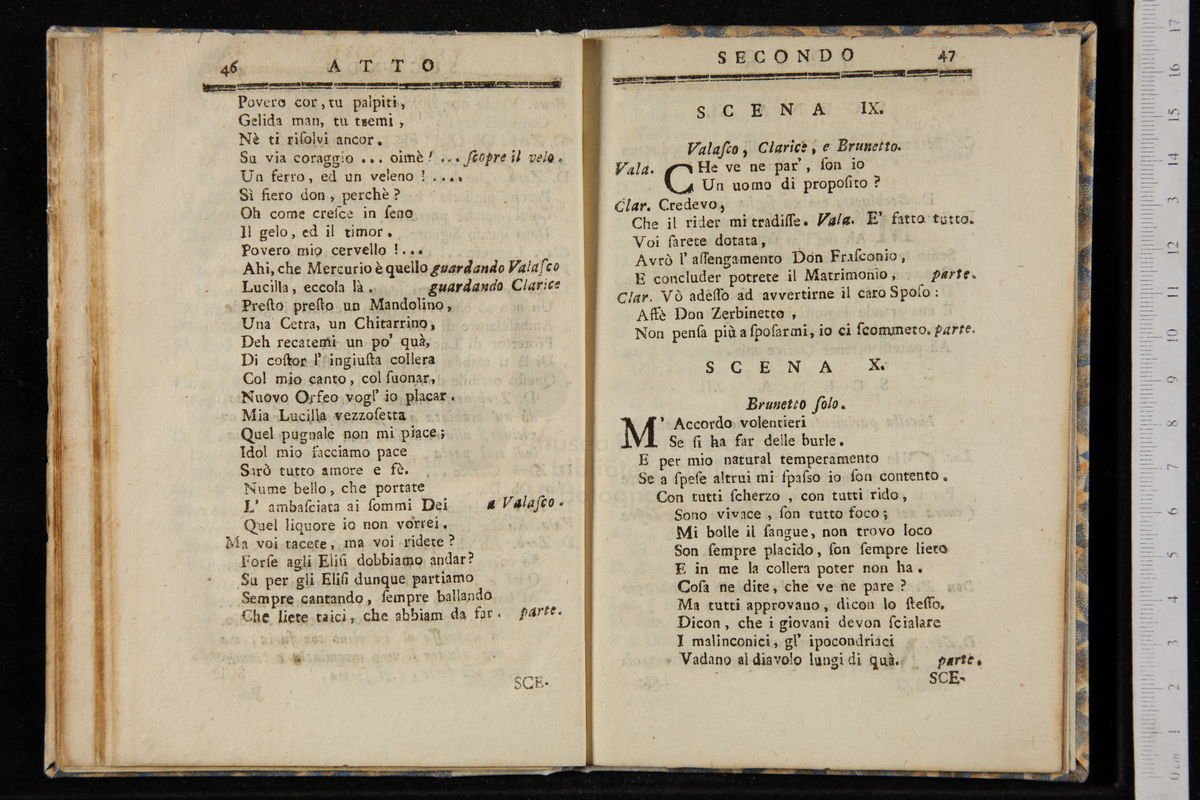 46 ATTO
Povero cor, tu palpiti,
Gelida man, tu tremi,
Nè ti riſolvi ancor.
Su via coraggio ... oimè! ... ſcopre il velo.
Un ferro, ed un veleno! ....
Sì fiero don, perchè?
Oh come creſce in ſeno
Il gelo, ed il timor.
Povero mio cervello!...
Ahi, che Mercurio è quello guardando Valaſco
Lucilla, eccola là. guardando Clarice
Preſto preſto un Mandolino,
Una Cetra, un Chitarrino,
Deh recatemi un po' quà,
Di coſtor l' ingiuſta collera
Col mio canto, col ſuonar,
Nuovo Orfeo vogl' io placar.
Mia Lucilla vezzoſetta
Quel pugnale non mi piace;
Idol mio facciamo pace
Sarò tutto amore e fè.
Nume bello, che portate
L' ambaſciata ai ſommi Dei a Valaſco.
Quel liquore io non vorrei.
Ma voi tacete, ma voi ridete?
Forſe agli Eliſi dobbiamo andar?
Su per gli Eliſi dunque partiamo
Sempre cantando, ſempre ballando
Che liete taici, che abbiam da far. parte.
SCE-
SECONDO 47
SCENA IX.
Valaſco, Clarice, e Brunetto.
Vala. CHe ve ne par', ſon io
Un uomo di propoſito?
Clar. Credevo,
Che il rider mi tradiſſe. Vala. E' fatto tutto.
Voi ſarete dotata,
Avrò l' aſſengamento Don Fraſconio,
E concluder potrete il Matrimonio, parte.
Clar. Vò adeſſo ad avvertirne il caro Spoſo:
Affè Don Zerbinetto,
Non penſa più a ſpoſarmi, io ci ſcommeto. parte.
SCENA X.
Brunetto ſolo.
M' Accordo volentieri
Se ſi ha far delle burle.
E per mio natural temperamento
Se a ſpeſe altrui mi ſpaſso io ſon contento.
Con tutti ſcherzo, con tutti rido,
Sono vivace, ſon tutto foco;
Mi bolle il ſangue, non trovo loco
Son ſempre placido, ſon ſempre lieto
E in me la collera poter non ha.
Coſa ne dite, che ve ne pare?
Ma tutti approvano, dicon lo ſteſſo.
Dicon, che i giovani devon ſcialare
I malinconici, gl' ipocondriaci
Vadano al diavolo lungi di quà. parte.
SCE-